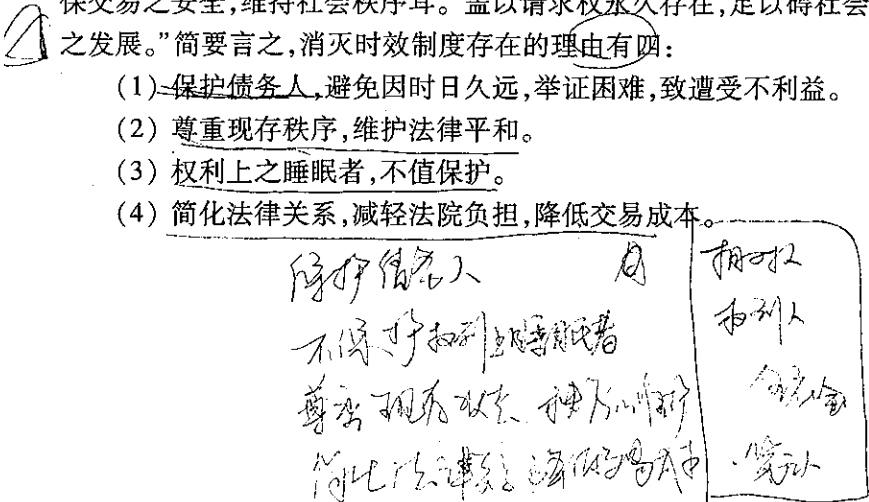 保交易之安全,维持社会秩序耳。盖以请求权永久存在,足以碍社会
之发展。”简要言之,消灭时效制度存在的理由有四:
(1) 保护债务人,避免因时日久远,举证困难,致遭受不利益。
(2) 尊重现存秩序,维护法律平和。
(3) 权利上之睡眠者,不值保护。
(4) 简化法律关系,减轻法院负担,降低交易成本。
保护债务人
不保护权利上睡眠者
尊重现存状态
简化法律关系 降低交易成本
权利人